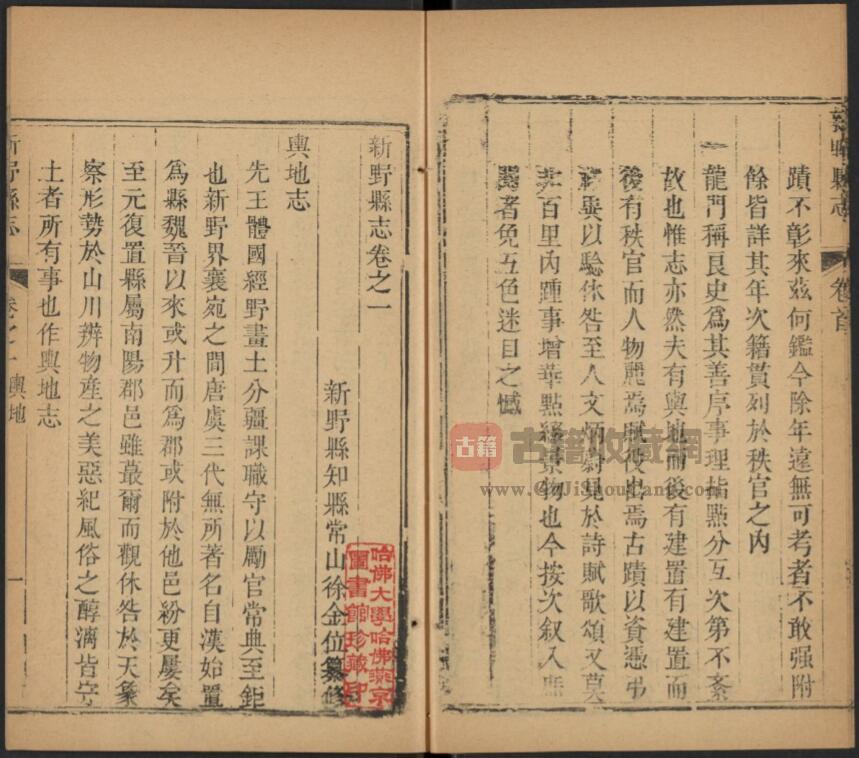 新野縣志
卷首
蹟不彰來兹何鑑今除年遠無可考者不敢强附
餘皆詳其年次籍貫列於秩官之內
一龍門稱良史爲其善序事理指點分互次第不紊
故也惟志亦然夫有輿地而後有建置有建置而
後有秩官而人物麗焉賦役出焉古蹟以資憑弔
祥異以驗休咎至人文炳蔚見於詩賦歌頌又莫
非百里內踵事增華點綴景物也今按次叙入
覽者免五色迷目之憾
新野縣志卷之一
新野縣知縣常山徐金位纂修
輿地志
先王體國經野畫土分疆課職守以勵官常典至鉅
也新野界襄宛之間唐虞三代無所著名自漢始置
爲縣魏晉以來或升而爲郡或附於他邑紛更屢矣
至元復置縣屬南陽郡邑雖蕞爾而觀休咎於天象
察形勢於山川辨物產之美惡紀風俗之醇漓皆守
土者所有事也作輿地志
新野縣志
卷之一 輿地
一
哈佛大學哈佛燕京
圖書館珍藏印
古籍
古籍收藏網
www.GuJiShouCang.com